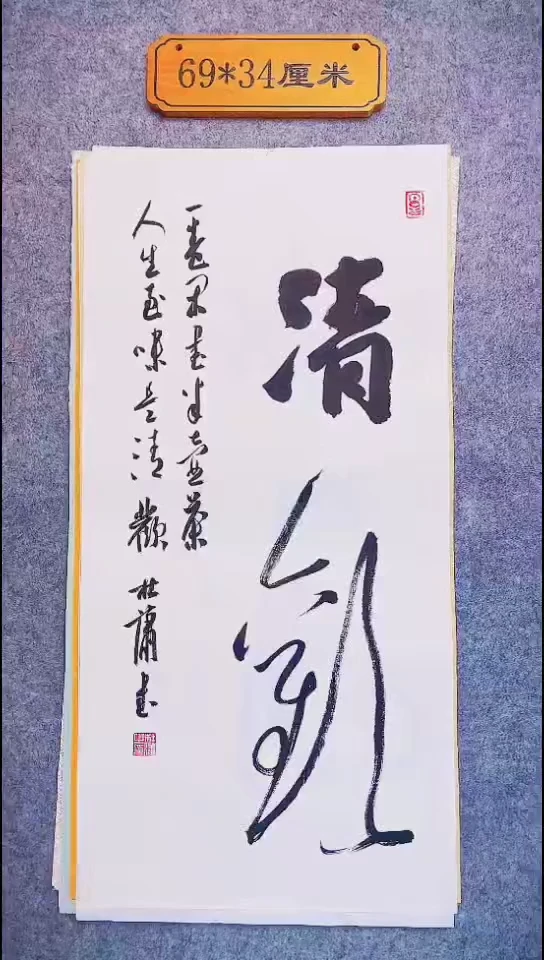 69*34厘米
清歡
一卷闲书半壶茶
人生至味是清歡
杜书